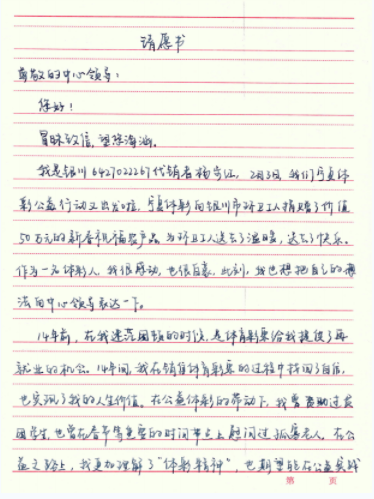 请愿书
尊敬的中心领导:
您好!
冒昧致信,望您海涵。
我是银川6427022267代销者杨 ,2月3日,我们宁夏体
彩公益行动又出发啦,宁夏体彩向银川市环卫工人捐赠了价值
50万元的新春祝福农产品,为环卫工人送去了温暖,送去了快乐。
作为一名体彩人,我很感动,也很自豪,此刻,我也想把自己的想
法向中心领导表达一下。
14年前,在我迷茫困顿的时候,是体育彩票给我提供了再
就业的机会。14年间,我在销售体育彩票的过程中找回了自信,
也实现了我的人生价值。在公益体彩的带动下,我曾资助过贫
困学生,也曾在春节等重要的时间节点上慰问过孤寡老人,在公
益之路上,我更加理解了“体彩精神”,也期望能在公益实践
第 页